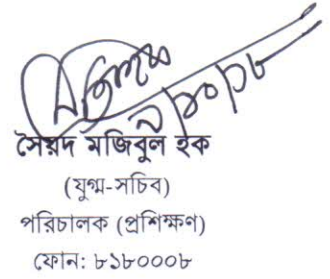 ৯/১০/১৮
সৈয়দ মজিবুল হক
(যুগ্ম-সচিব)
পরিচালক (প্রশিক্ষণ)
ফোন: ৮১৮০০০৮